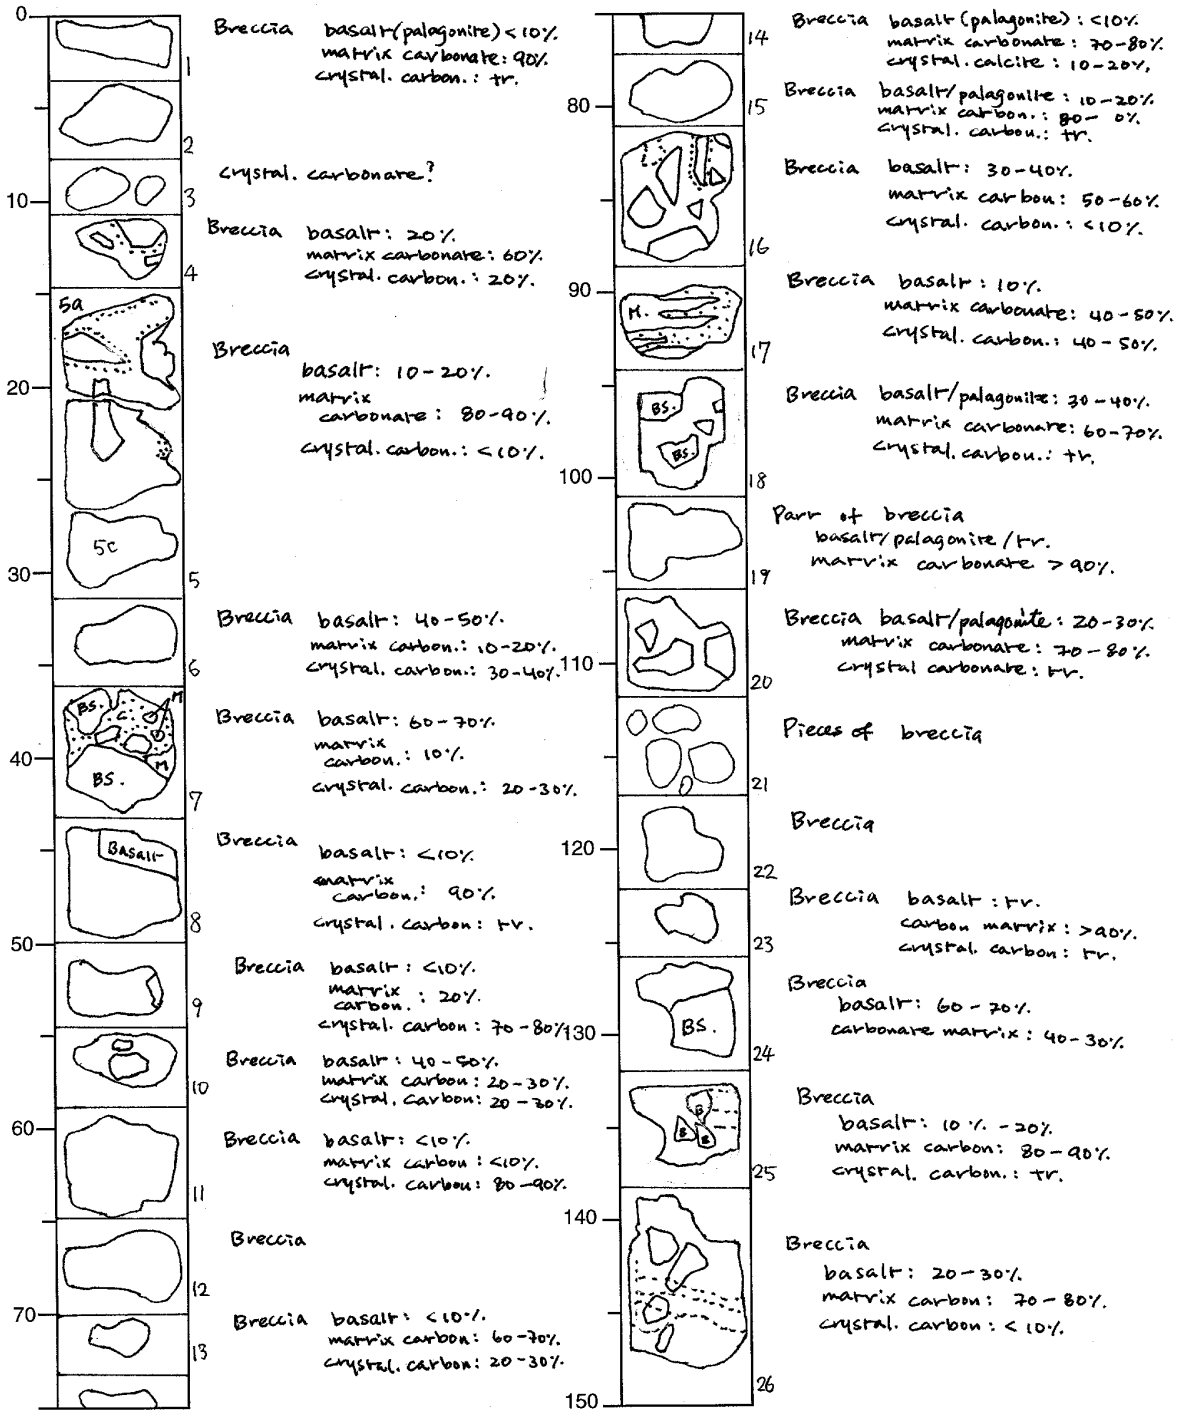 0
Breccia basalt(palagonite) <10%.
matrix carbonate: 90%.
crystal. carbon.: tr.
1
2
crystal. carbonate?
3
10
Breccia basalt: 20%.
matrix carbonate: 60%.
crystal. carbon.: 20%.
4
5a
Breccia
basalt: 10-20%.
matrix
carbonate: 80-90%.
crystal. carbon.: <10%.
20
5c
5
30
Breccia basalt: 40-50%.
matrix carbon.: 10-20%.
crystal. carbon.: 30-40%.
6
BS.
C
M
Breccia basalt: 60-70%.
matrix
carbon.: 10%.
crystal. carbon.: 20-30%.
40
BS.
M
7
Basalt
Breccia
basalt: <10%.
matrix
carbon.: 90%.
crystal. carbon: tr.
8
50
Breccia basalt: <10%.
matrix
carbon. : 20%.
crystal. carbon: 70-80%
9
Breccia basalt: 40-50%.
matrix carbon: 20-30%.
crystal. carbon: 20-30%.
10
60
Breccia basalt: <10%.
matrix carbon: <10%.
crystal. carbon: 80-90%.
11
Breccia
12
70
Breccia basalt: <10%.
matrix carbon: 60-70%.
crystal. carbon: 20-30%.
13
Breccia basalt (palagonite): <10%.
matrix carbonate: 70-80%.
crystal. calcite: 10-20%.
14
80
Breccia basalt/palagonite: 10-20%.
matrix carbon.: 80- 0%.
crystal. carbon.: tr.
15
Breccia basalt: 30-40%.
matrix carbon: 50-60%.
crystal. carbon.: <10%.
16
90
M.
Breccia basalt: 10%.
matrix carbonate: 40-50%.
crystal. carbon.: 40-50%.
17
BS.
BS.
Breccia basalt/palagonite: 30-40%.
matrix carbonate: 60-70%.
crystal. carbon.: tr.
100
18
Part of breccia
basalt/palagonite/tr.
matrix carbonate >90%.
19
Breccia basalt/palagonite: 20-30%.
matrix carbonate: 70-80%.
crystal carbonate: tr.
110
20
Pieces of breccia
21
Breccia
120
22
Breccia basalt: tr.
carbon matrix: >90%.
crystal. carbon: tr.
23
Breccia
basalt: 60-70%.
carbonate matrix: 40-30%.
130
BS.
24
Breccia
basalt: 10%-20%.
matrix carbon: 80-90%.
crystal. carbon.: tr.
B
B
B
25
140
Breccia
basalt: 20-30%.
matrix carbon: 70-80%.
crystal. carbon: <10%.
26
150